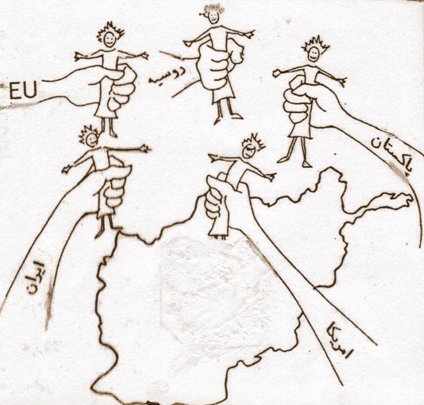 EU
روسیه
پاکستان
ایران
امریکا